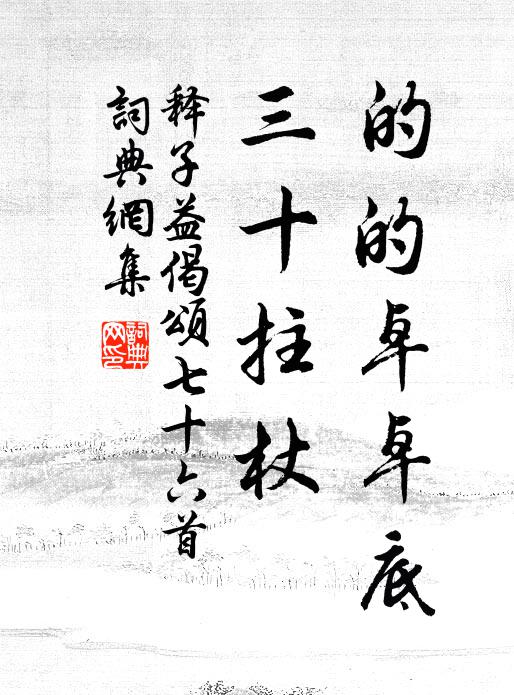 的的卓卓底
三十拄杖
释子益偈頌七十六首
詞典網集
詞典
网印